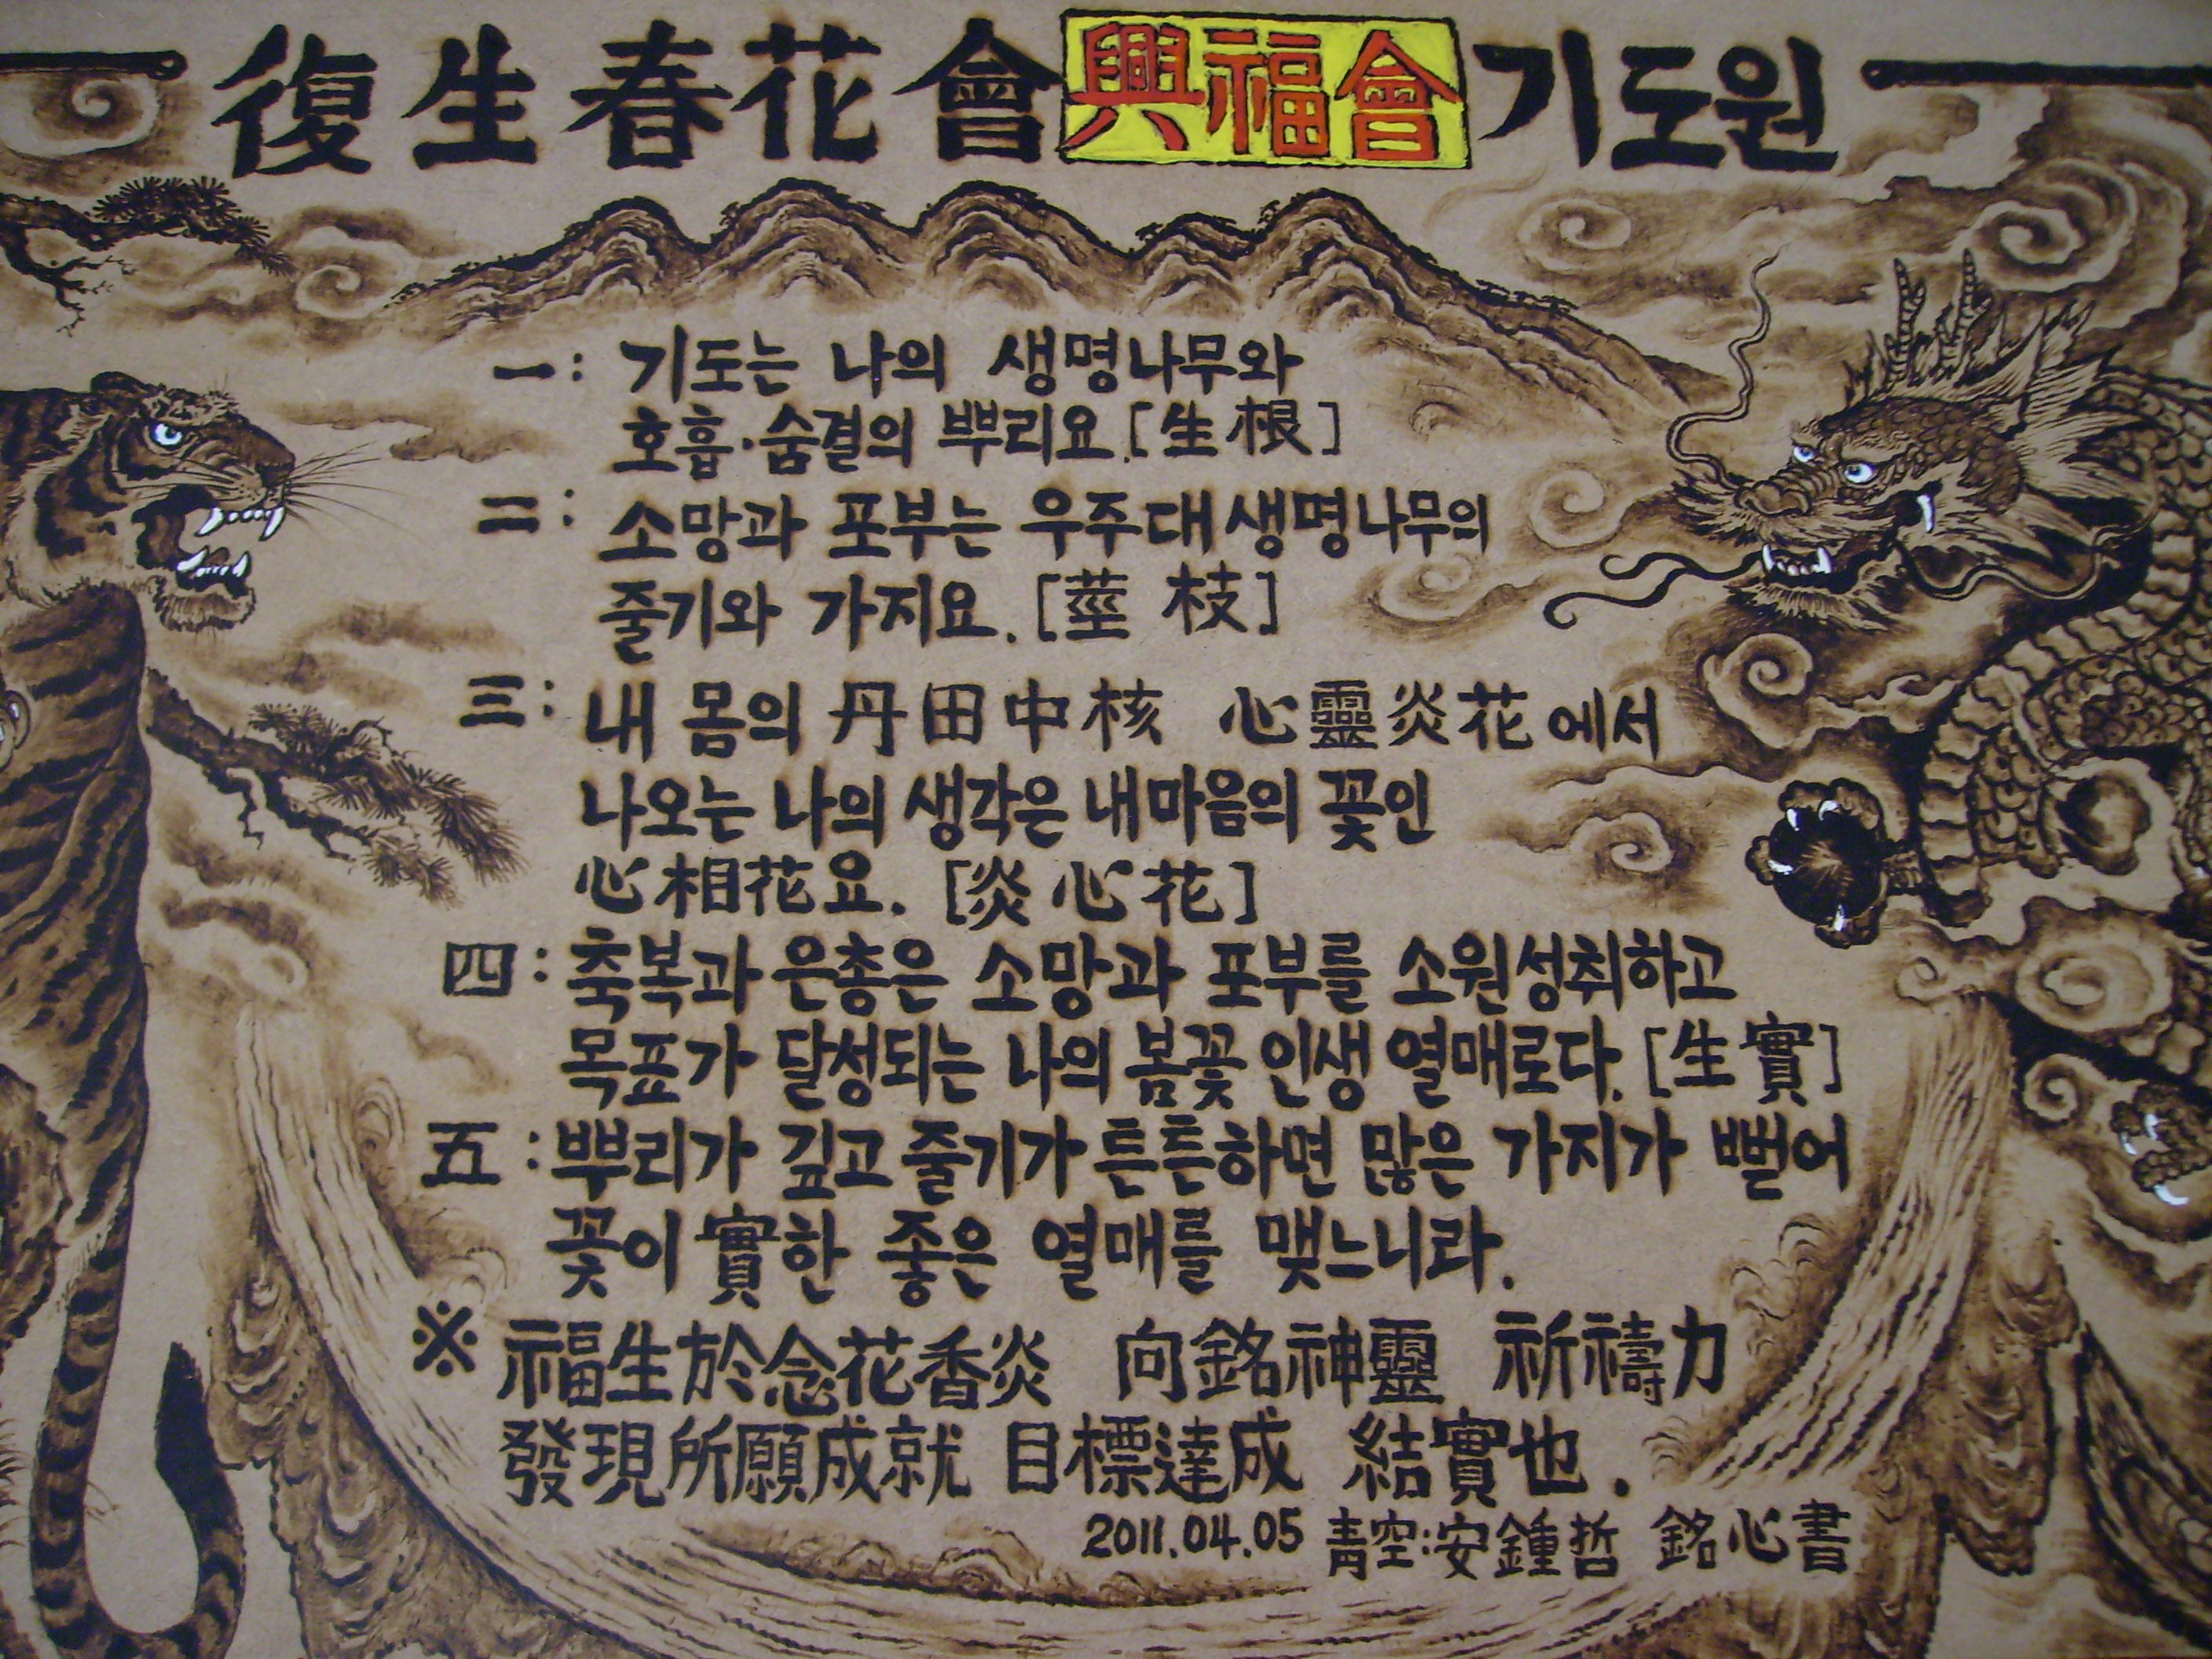 復生春花會 興福會 기도원
一: 기도는 나의 생명나무와
호흡·숨결의 뿌리요.[生根]
二: 소망과 포부는 우주대생명나무의
줄기와 가지요.[莖枝]
三: 내 몸의 丹田中核 心靈炎花에서
나오는 나의 생각은 내마음의 꽃인
心相花요. [炎心花]
四: 축복과 은총은 소망과 포부를 소원성취하고
목표가 달성되는 나의 봄꽃 인생 열매로다.[生實]
五: 뿌리가 깊고 줄기가 튼튼하면 많은 가지가 뻗어
꽃이 實한 좋은 열매를 맺느니라.
※ 福生於念花香炎 向銘神靈 祈禱力
發現所願成就 目標達成 結實也.
2011.04.05 靑空:安鍾哲 銘心書